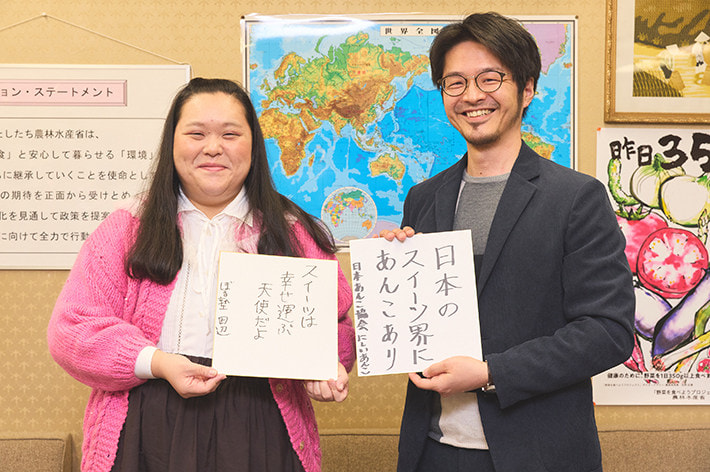 ョン・ステートメント
たしたち農林水産省は、
食」と安心して暮らせる「環境」
に継承していくことを使命として
の期待を正面から受けとめ
化を見通して政策を提案
に向けて全力で行動
世界全図
スイーツは
幸せ運ぶ
天使だよ
ぼる塾 田辺
日本の
スイーツ界に
あんこあり
日本あんこ協会 にしいあんこ
昨日35
健康のために、野菜を1日350g以上食べま
「野菜を食べようプロジェ
農林水産省